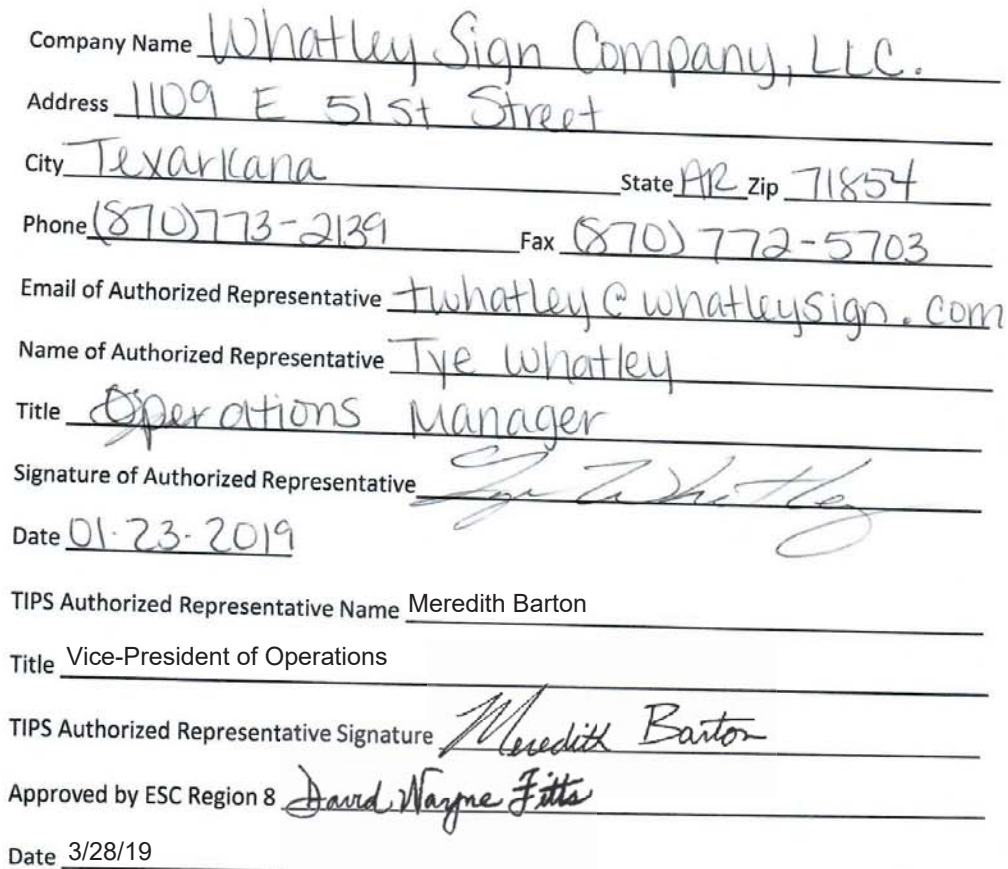 Company Name Whatley Sign Company, LLC.
Address 1109 E 51st Street
City Texarkana State AR Zip 71854
Phone (870)773-2139 Fax (870) 772-5703
Email of Authorized Representative twhatley@whatleysign.com
Name of Authorized Representative Tye Whatley
Title Operations Manager
Signature of Authorized Representative Tye Whatley
Date 01-23-2019
TIPS Authorized Representative Name Meredith Barton
Title Vice-President of Operations
TIPS Authorized Representative Signature Meredith Barton
Approved by ESC Region 8 David Wayne Fitts
Date 3/28/19